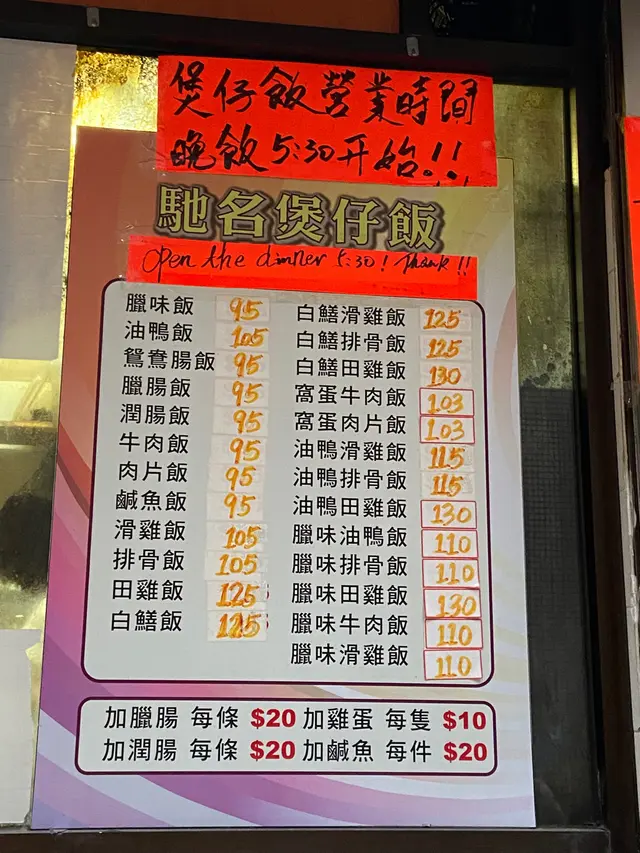 煲仔飯營業時間
晚飯5:30开始!!
馳名煲仔飯
Open the dinner 5:30! Thank!!
臘味飯 95
油鴨飯 105
鴛鴦腸飯 95
臘腸飯 95
潤腸飯 95
牛肉飯 95
肉片飯 95
鹹魚飯 95
滑雞飯 105
排骨飯 105
田雞飯 125
白鱔飯 125
白鱔滑雞飯 125
白鱔排骨飯 125
白鱔田雞飯 130
窩蛋牛肉飯 103
窩蛋肉片飯 103
油鴨滑雞飯 115
油鴨排骨飯 115
油鴨田雞飯 130
臘味油鴨飯 110
臘味排骨飯 110
臘味田雞飯 130
臘味牛肉飯 110
臘味滑雞飯 110
加臘腸 每條 $20 加雞蛋 每隻 $10
加潤腸 每條 $20 加鹹魚 每件 $20